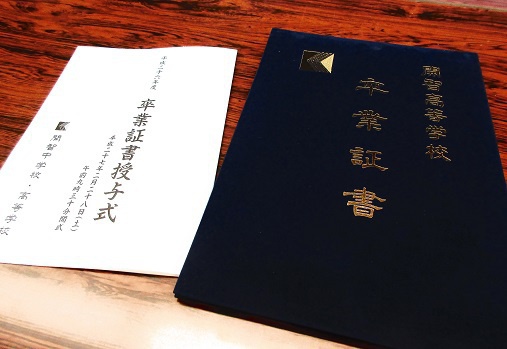 平成二十六年度
卒業証書授与式
平成二十七年二月二十八日(土)
午前九時三十分開式
開智中学校・高等学校
開智高等学校
卒業証書